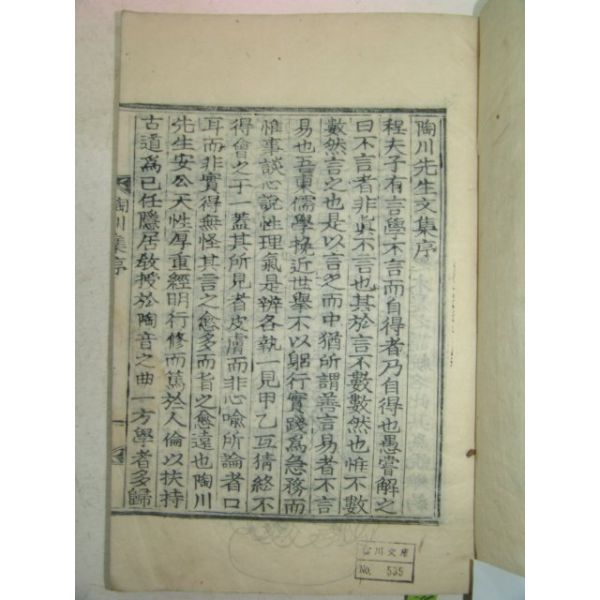 陶川先生文集序
程夫子有言學不言而自得者乃自得也愚嘗解之
曰不言者非眞不言也其於言不數數然也惟不數
數然言之也是以言之而中猶所謂善言易者不言
易也吾東儒學挽近世擧不以躬行實踐爲急務而
惟事談心說性理氣是辨各執一見甲乙互猜終不
得會之于一蓋其所見者皮膚而非心喩所論者口
耳而非實得無怪其言之愈多而旨之愈遠也陶川
先生安公天性厚重經明行修而篤於人倫以扶持
古道爲己任隱居敎授於陶音之曲一方學者多歸
陶川集序
一
川文庫
No. 535